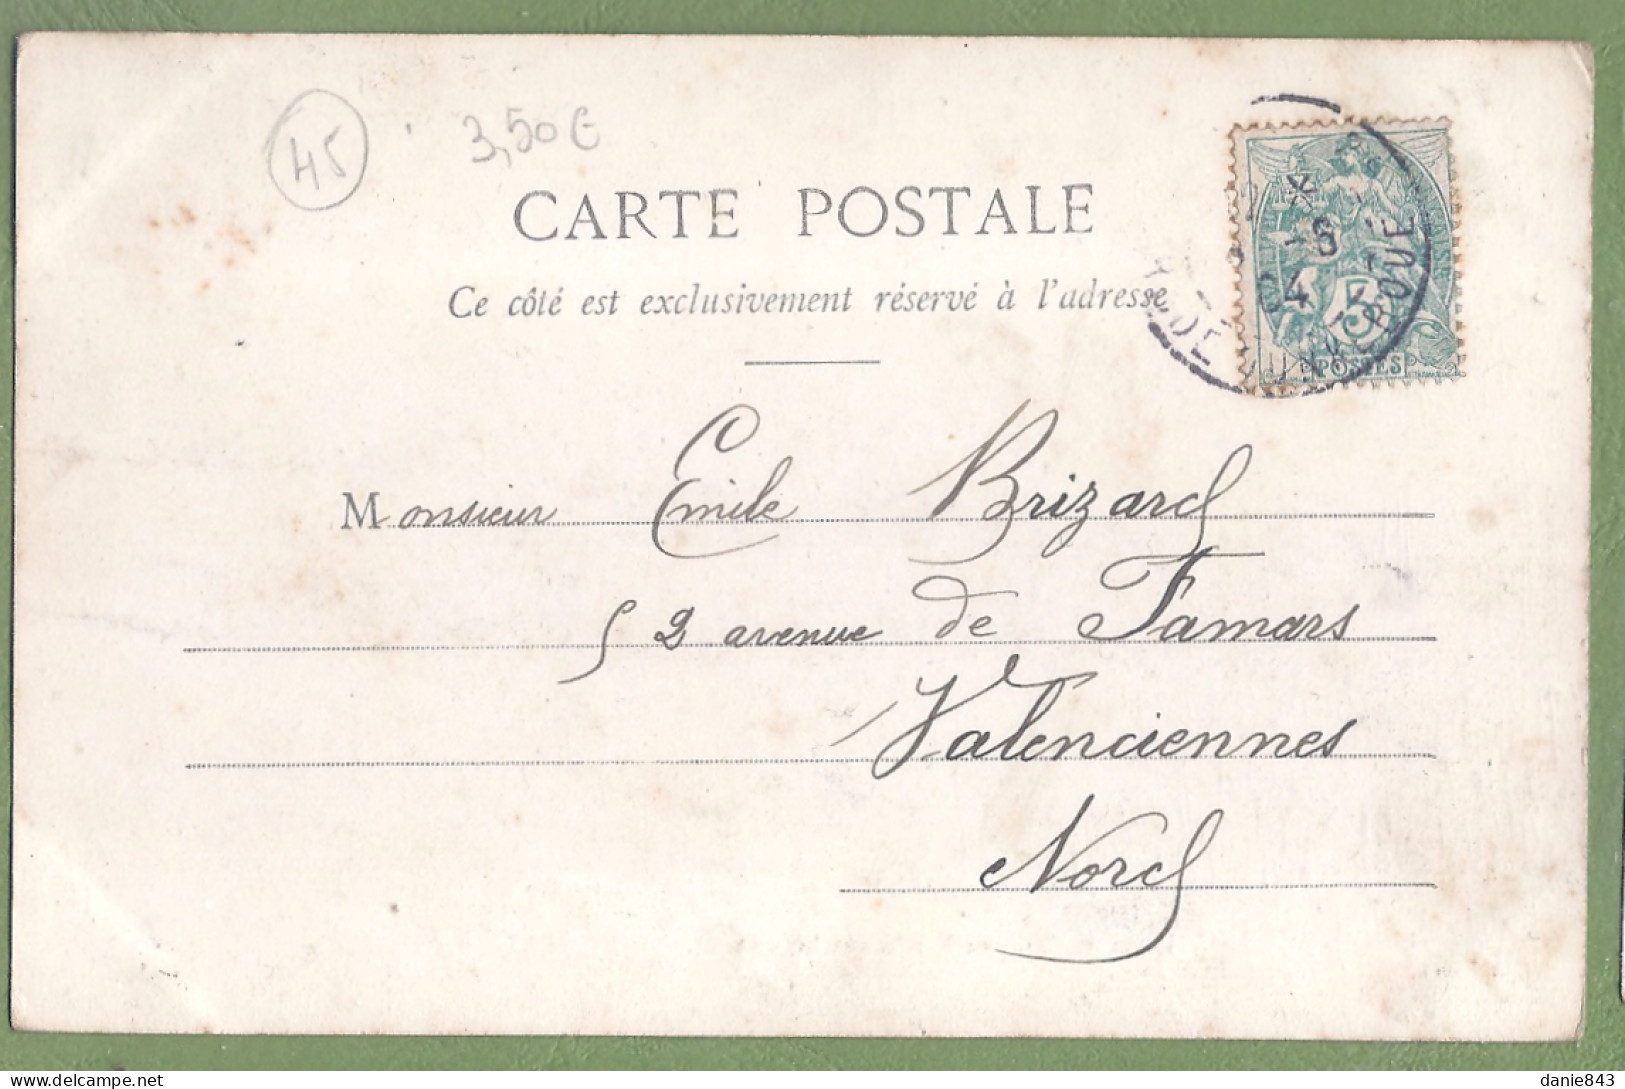 45
3,50€
CARTE POSTALE
Ce côté est exclusivement réservé à l'adresse
5
POSTES
Monsieur Emile Brizard
52 avenue de Famars
Valenciennes
Nord
danie843